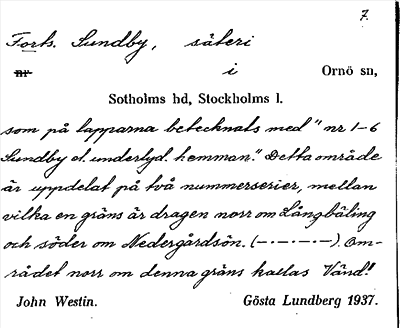 7.
Forts. Sundby, säteri
nr i Ornö sn,
Sotholms hd, Stockholms l.
som på lapparna betecknats med "nr 1-6
Sundby el. underlyd. hemman." Detta område
är uppdelat på två nummerserier, mellan
vilka en gräns är dragen norr om Långbäling
och söder om Nedergårdsön. (-·-·-·-). Om-
rådet norr om denna gräns kallas Vänd!
John Westin. Gösta Lundberg 1937.